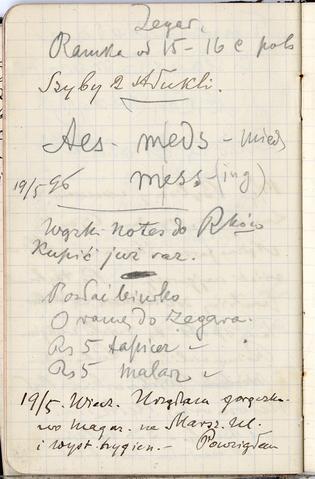 Zegar.
Ramka od 15-16 c
Szyby 2 stłukli.
Aes - meds - mied
19/5 96 mess-(ing)
Wązki notes do Rków
Kupić już raz.
O ramę do zegara.
Rs 5 tapicer -
Rs 5 malarz -
19/5. Wiecz. Urządzam
wo magaz. na Marsz. Ul.
i wyst. hygien. -